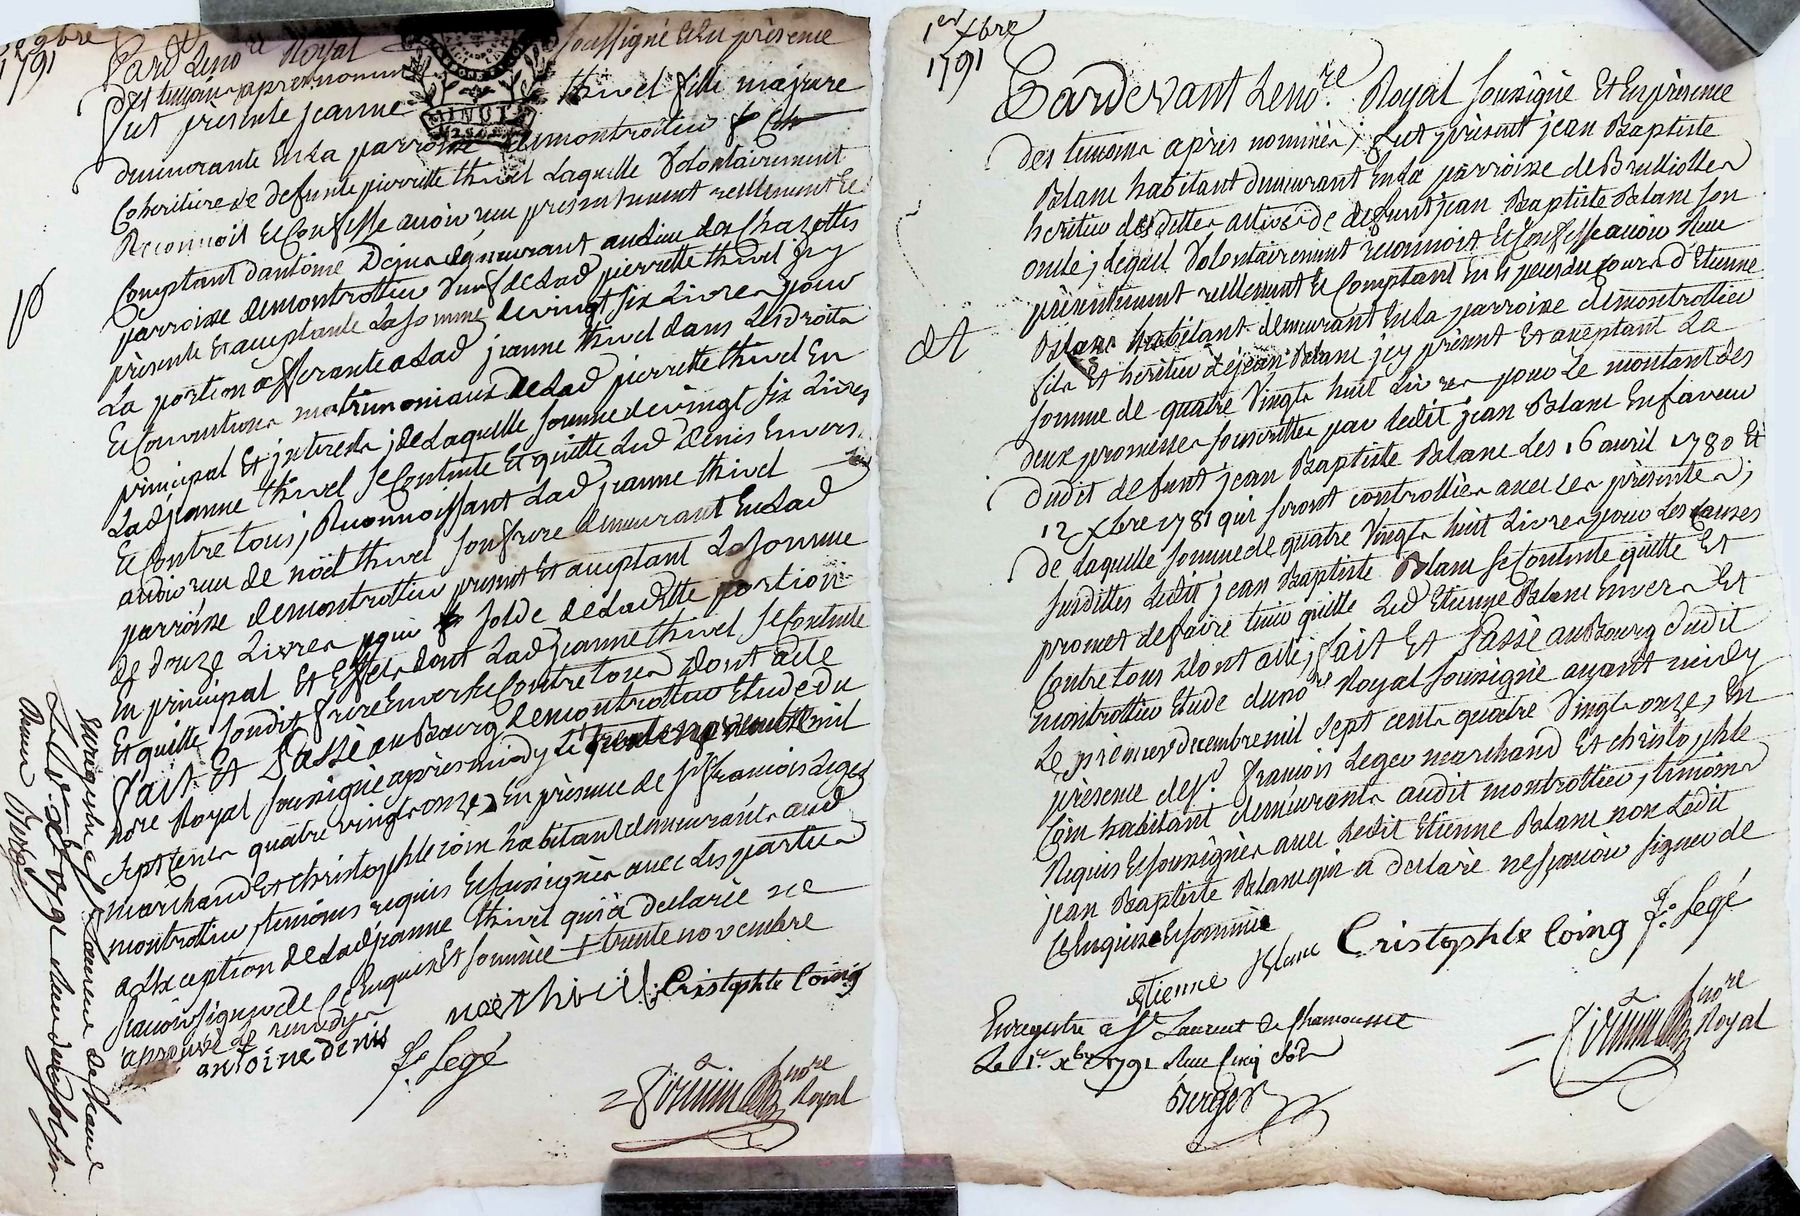 30 9bre
1791
Pard. Leno.re Royal soussigné et en présence
des temoins apres nommés
fut présente jeanne thivel fille majeure
demeurante en la parroisse demontrotier &
Coheritiere de defunte pierrette thivel Laquelle Volontairement
Reconnoit et Confesse avoir reçu presentement reellement et
Comptant dantoine Denis demeurant au Lieu des Chazottes
parroisse demontrottier veuf de Lad. pierrette thivel jcy
présente et acceptante La somme de vingt six Livres pour
La portion afferante a Lad. jeanne thivel dans Les droits
et Conventions matrimoniaux de Lad. pierrette thivel En
principal Et jnterets ; de Laquelle somme de vingt six Livres
Lad. jeanne thivel se Contente Et quitte Led. Denis Envers
Et Contre tous ; Reconnoissant Lad. jeanne thivel
avoir reçu de noël thivel son frere demeurant En Lad.
parroisse demontrottier présent Et acceptant La somme
de douze Livres pour solde de Laditte portion
En principal Et Effets dont Lad. jeanne thivel se Contente
Et quitte sondit frere Envers et Contre tous dont acte
fait Et Passé au Bourg demontrottier Etude du
nore Royal soussigné après midy Le trente novembre mil
sept cents quatre vingts onze, En présence de sr. françois Leger
marchand Et christophle coin habitant demeurants aud.
montrottier, témoins requis Et soussignés avec Les parties
a L'exception de Lad. jeanne thivel qui a declaré ne
sçavoir signer de Ce Enquise Et sommée + trente novembre
aprouvé Le renvoy
antoine denis
noel thivel
Cristophle Coing
f. Legé
nore
Royal
Enregistré a St. Laurent de Chamousset
Le 1er xbre 1791
Berger
1er xbre
1791
Pardevant Leno.re Royal soussigné Et En présence
des temoins après nommés ; fut présent jean Baptiste
Blanc habitant demeurant En La parroisse de Brulliolles
héritier des dittes actives de defunt jean Baptiste Blanc son
oncle ; Lequel Volontairement reconnoit Et Confesse avoir Reçu
présentement reellement Et Comptant En Espèces du Cours d'Etienne
Blanc habitant demeurant En La parroisse demontrottier
fils Et héritier de jean Blanc jcy présent Et acceptant La
somme de quatre Vingts huit Livres pour Le montant des
deux promesses souscrittes par Ledit jean Blanc En faveur
dudit defunt jean Baptiste Blanc Les 16 avril 1780 Et
12 xbre 1781 qui seront controllées avec ces présentes ;
de Laquelle somme de quatre Vingts huit Livres pour Les Causes
susdittes Ledit jean Baptiste Blanc se Contente quitte Et
promet de faire tenir quitte Led. Etienne Blanc Envers Et
Contre tous dont acte, fait Et Passé au Bourg dudit
montrottier Etude du nore Royal soussigné avant midy
Le premier decembre mil sept cents quatre Vingts onze, En
présence de sr. françois Leger marchand Et christophle
Coin habitant demeurants audit montrottier, témoins
Requis Et soussignés avec Ledit Etienne Blanc non Ledit
jean Baptiste Blanc qui a declaré ne sçavoir signer de
Ce Enquis Et sommé
etienne Blanc
Cristophle Coing
f. Legé
nore
Royal
Enregistré a St. Laurent de Chamousset
Le 1er xbre 1791 Reçu Cinq sols
Berger